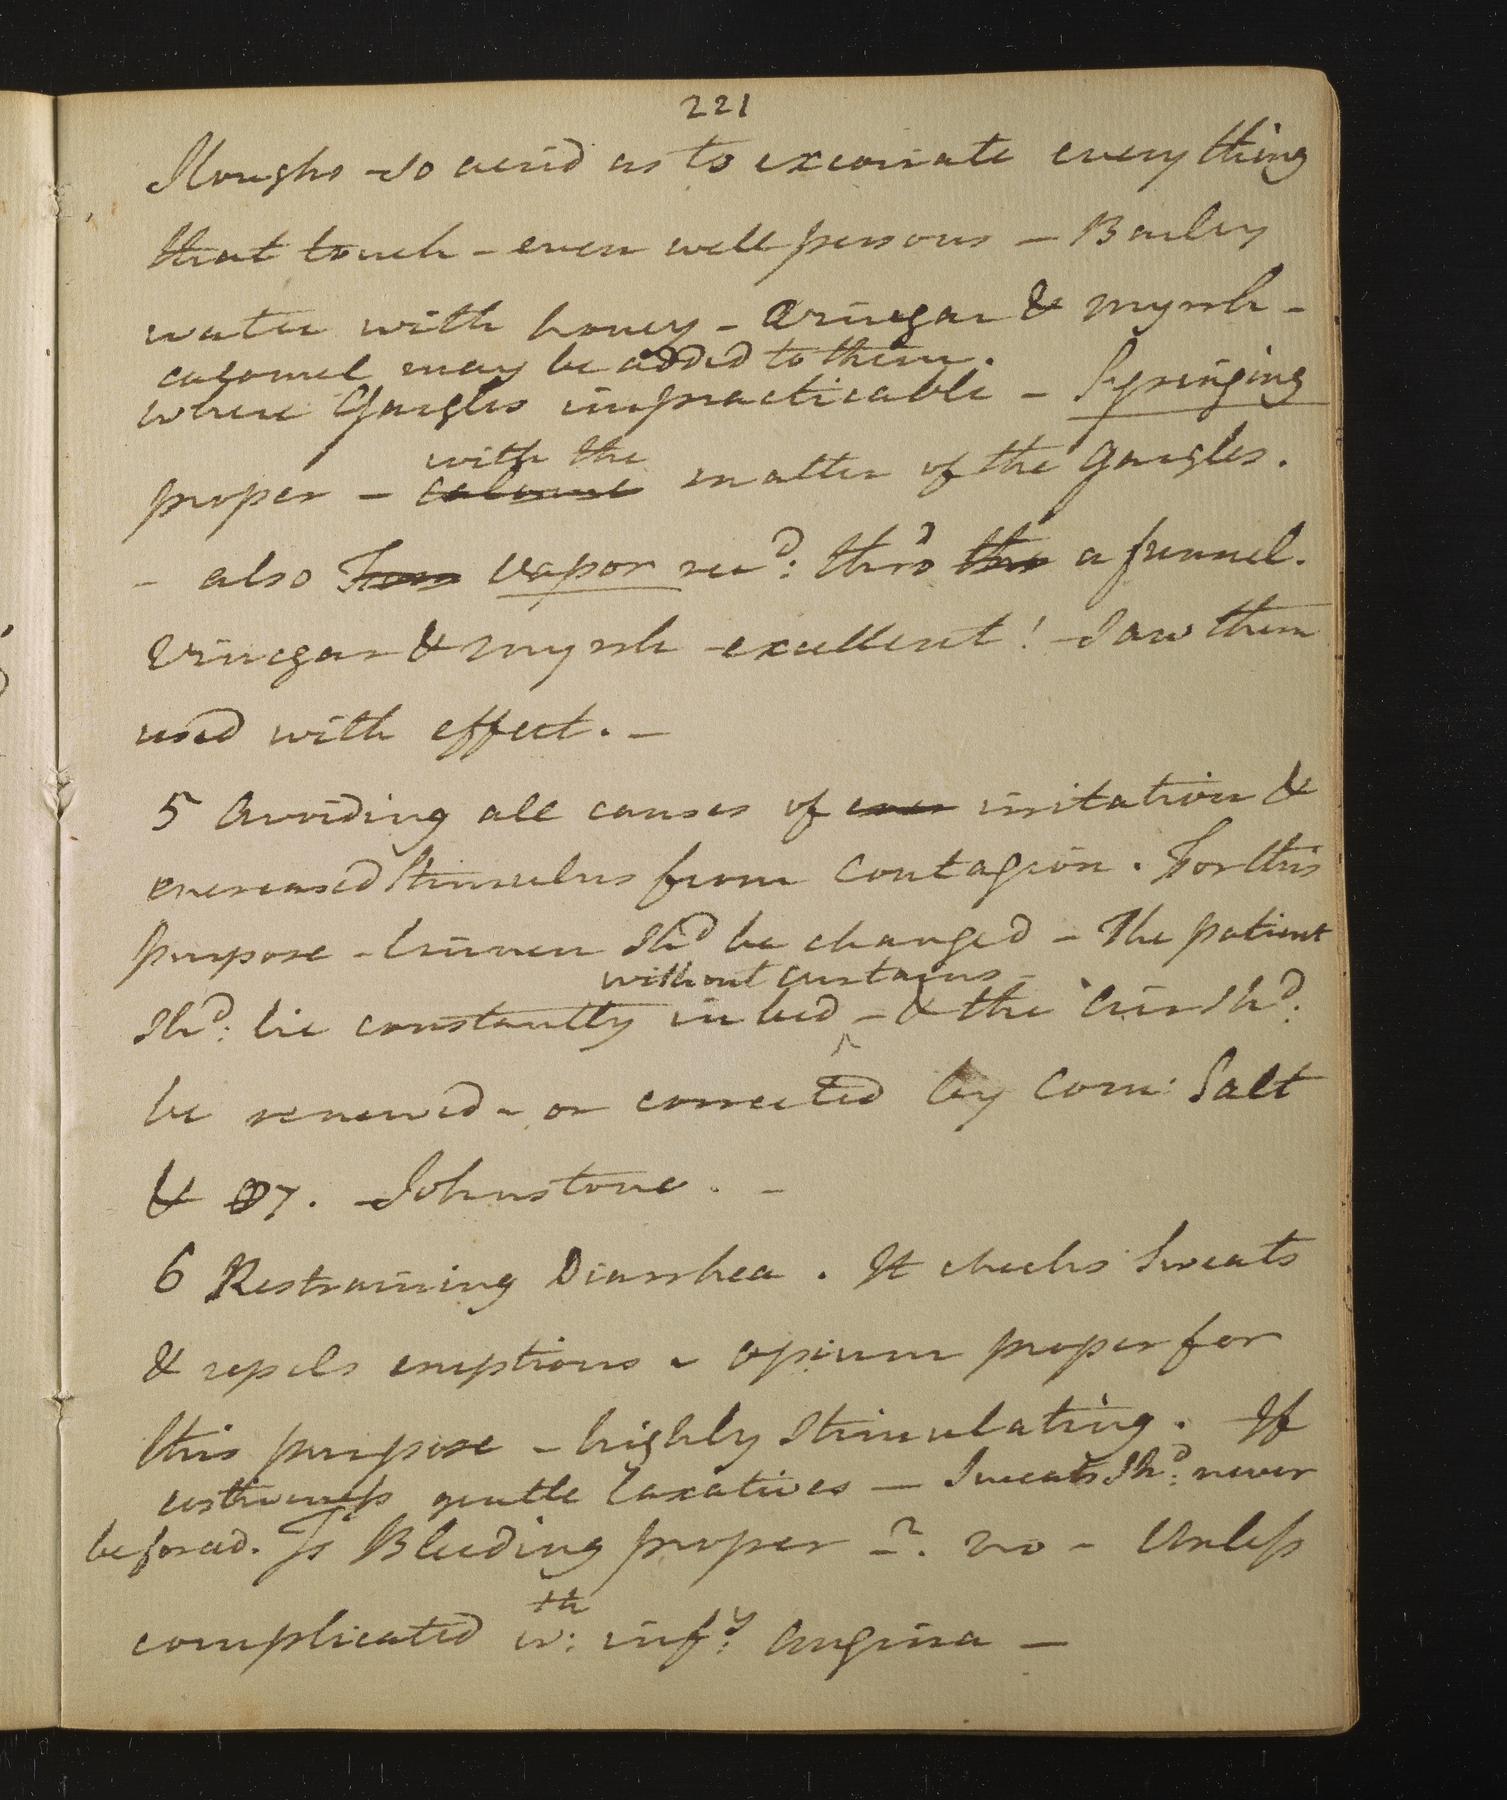 221
Sloughs so acrid as to excoriate every thing
that touch - even well persons - Barley
water with honey - Vinegar & myrrh -
calomel may be added to them.
where Gargles impracticable - Syringing
with the
proper - calomel matter of the Gargles.
- also From vapor recd: thro' the a funnel.
Vinegar & myrrh excellent! - Saw them
used with effect. -
5 Avoiding all causes of irritation &
encreased Stimulus from Contagion. For this
purpose - linnen Shd be changed - The patient
without curtains -
Shd: lie constantly in bed ^ - & the air Shd:
be renewed - or corrected by Com: Salt
& Johnstone. -
6 Restraining Diarrhea. It checks Sweats
& repels eruptions - opium proper for
this purpose - highly Stimulating. If
costiveness gentle laxatives - Sweats Shd: never
be forced. Is Bleeding proper -?. no - Unless
complicated wth: infy: Angina -